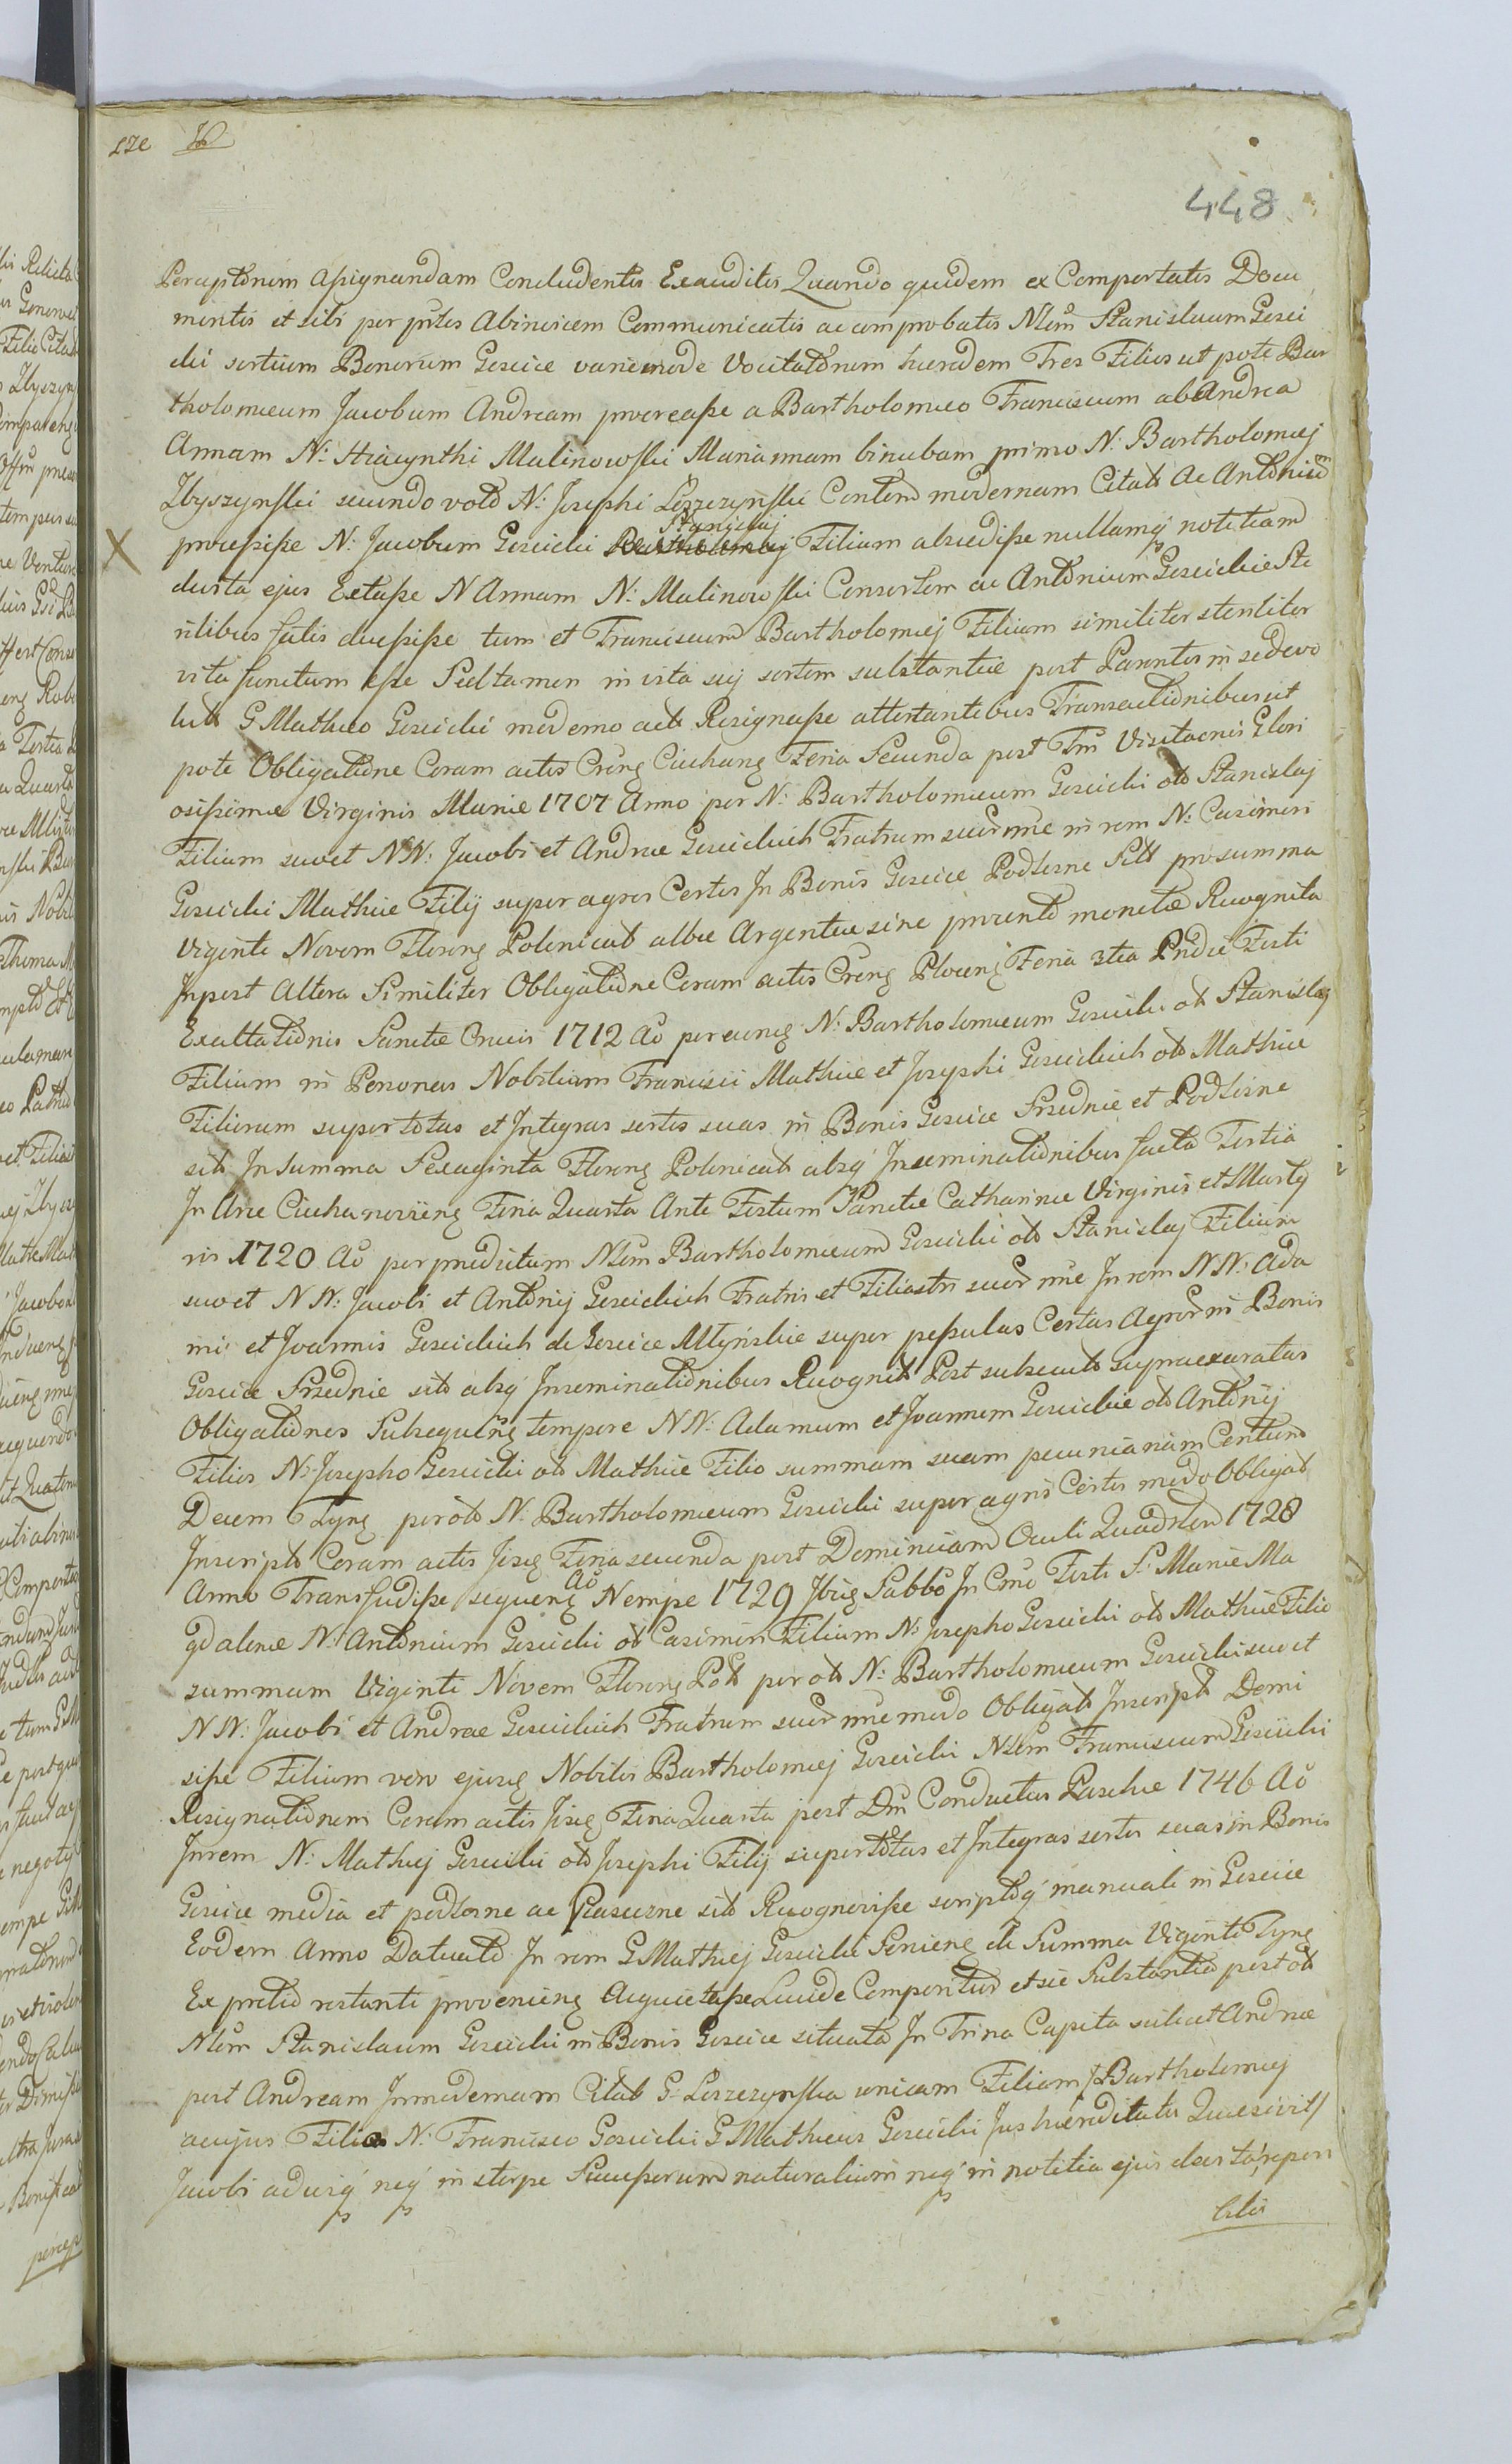 448
Perceptõnem assignandam Concludentis Exauditis Quando quidem ex Comportatis Docu
mentis et sibi per ptes abinvicem Communicatis ac comprobatis Nlem Stanislaum Gosci
cki sortium Bonorum Goscice variemode Vocitatõnum haeredem Tres Filios ut pote Bar
tholomaeum Jacobum Andream procreasse a Bartholomaeo Franciscum ab Andrea
Annam N: Hiacynthi Malinowski Mariannam binubam primo N: Bartholomaej
Zbyszynski secundo voto N: Josephi Leszczynski Contem modernam Citat ac Antõnium
processisse N: Jacobum Goscicki Stanislaj Filium abscedisse nullamq notitiam
de vita ejus Extasse N Annam N: Malinowski Consortem ac Antõnium Goscickie Ste
rilibus fatis decessisse tum et Franciscum Bartholomaej Filium similiter steriliter
vita functum esse Sed tamen in vita sui sortem substantiae post Parentes in se devo
lut G Mathaeo Goscicki moderno act Resignasse attestantibus Transactiõnibus ut
pote Obligatiõne Coram actis Cren Ciechan Feria Secunda post Fm Visitaõnis Glori
osissimae Virginis Mariae 1707 Anno per N: Bartholomaeum Goscicki olt Stanislaj
Filium suo et NN: Jacobi et Andreae Goscickich Fratrum suor nne in rem N: Casimiri
Goscicki Mathiae Filij super agros Certos In Bonis Goscice Podlesne Sitt pro summa
Viginti Novem Floren Polonicat albae Argenteae sine provento monetae Recognita
Inpost Altera Similiter Obligatiõne Coram actis Cren Plocen Feria 3tia Pridie Festi
Exaltatiõnis Sanctae Crucis 1712 Ao per eunq N: Bartholomaeum Goscicki olt Stanislaj
Filium in Personas Nobilium Francisci Mathiae et Josephi Goscickich olt Mathiae
Filiorum super totas et Integras sortes suas in Bonis Goscice Srzednie et Podlesne
sit In Summa Sexaginta Floren Polonicat absq Inseminatiõnibus facta Tertia
In Arce Ciechanoviien Feria Quarta Ante Festum Sanctae Catharinae Virginis et Marty
ris 1720 Ao per praedictum Nlem Bartholomaeum Goscicki olt Stanislaj Filium
suo et NN: Jacobi et Antõnij Goscickich Fratris et Filiastri suor nne In rem NN: Ada
mi et Joannis Goscickich de Goscice Młyńskie super pessulas Certas Agror in Bonis
Goscice Srzednie sit absq Inseminatiõnibus Recognit Post subsecut supraexaratas
Obligatiõnes Subsequen tempore NN: Adamum et Joannem Goscickie olt Antõnij
Filios N: Josepho Goscicki olt Mathiae Filio summam suam pecuniariam Centum
Decem Tyn per olt N: Bartholomaeum Goscicki super agris Certis modo Obligat
Inscript Coram actis Jisq Feria secunda post Dominicam Oculi Quadrlem 1728
Anno Transfudisse sequen Ao Nempe 1729 Ibiq Sabbo In Cno Festi S: Mariae Ma
gdalenae N: Antõnium Goscicki olt Casimiri Filium N: Josepho Goscicki olt Mathiae Filio
summam Viginti Novem Floren Pol per olt N: Bartholomaeum Goscicki suo et
NN: Jacobi et Andreae Goscickich Fratrum suor nne modo Obligat Inscript Demi
sisse Filium vero ejusq Nobilis Bartholomaej Goscicki Nlem Franciscum Goscicki
Resignatiõnem Coram actis Jisq Feria Quarta post Dm Conductus Paschae 1746 Ao
In rem N: Mathaej Goscicki olt Josephi Filij super totas et Integras sortes suas in Bonis
Goscice media et podlesne ac Piaseczne sit Recognovisse scriptoq manuali in Goscice
Eodem Anno Datuato In rem G Mathaej Goscicki Servien de Summa Viginti Tyn
Ex pretio restanti provenien acquietasse Lucide Comperitur et sic Substantia post olt
Nlem Stanislaum Goscicki in Bonis Goscice situata In Trina Capita scilicet Andreae
post Andream In modernam Citat G: Leszczynska unicam Filiam / Bartholomaej
a cujus Filio N: Francisco Goscicki G Mathaeus Goscicki Jus haereditatis Quaesivit /
Jacobi ad usq neq in stirpe Successorum naturalium neq in notitia ejus de vita repen